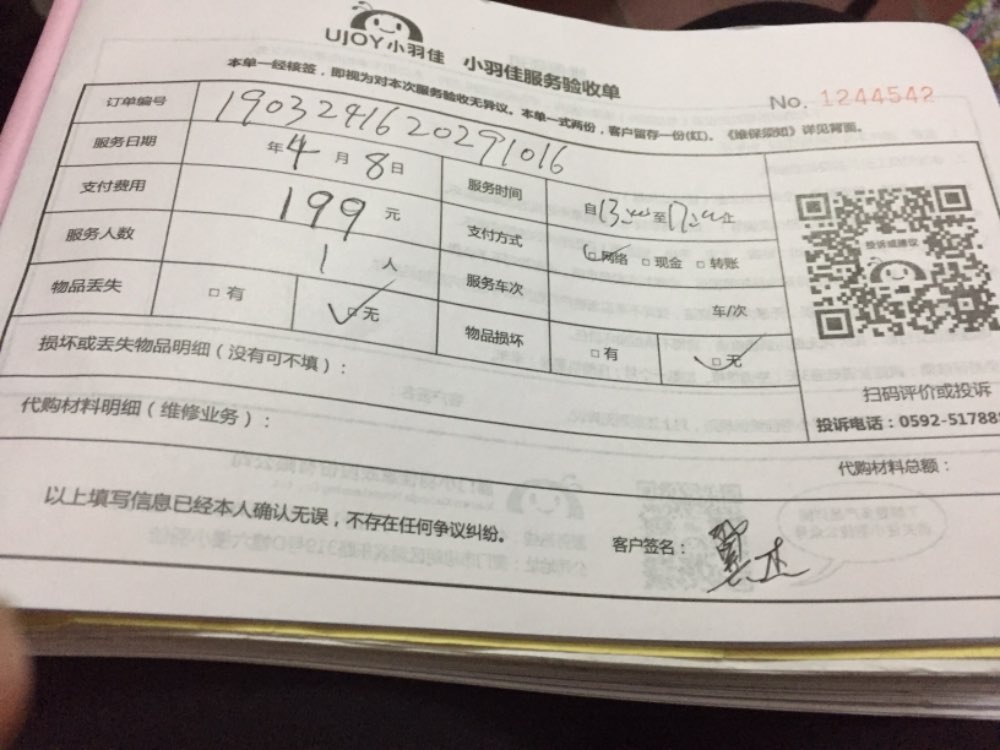 UJOY小羽佳 小羽佳服务验收单
本单一经核签，即视为对本次服务验收无异议。本单一式两份，客户留存一份(红)。《维保须知》详见背面。
No. 1244542
订单编号 1903241620291016
服务日期 年4月8日 服务时间 自13:00至17:00止
支付费用 199元 支付方式 □网络 □现金 □转账
服务人数 1人 服务车次 车/次
物品丢失 □有 □无 物品损坏 □有 □无
投诉或建议
扫码评价或投诉
投诉电话：0592-51788
损坏或丢失物品明细（没有可不填）：
代购材料明细（维修业务）：
代购材料总额：
以上填写信息已经本人确认无误，不存在任何争议纠纷。
客户签名：